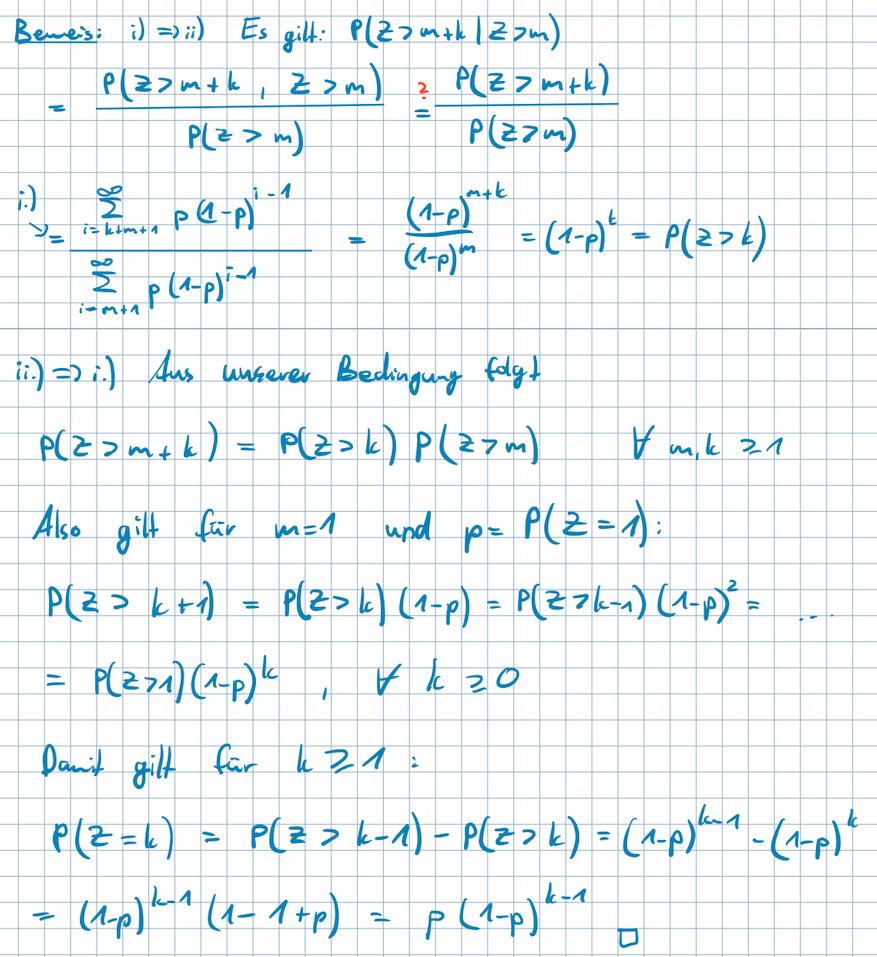 Beweis: i) => ii) Es gilt: P(Z > m+k | Z > m)
= P(Z > m+k , Z > m) / P(Z > m) =? P(Z > m+k) / P(Z > m)
i.) = ∑_{i=k+m+1}^∞ p(1-p)^{i-1} / ∑_{i=m+1}^∞ p(1-p)^{i-1} = (1-p)^{m+k} / (1-p)^m = (1-p)^k = P(Z > k)
ii.) => i.) Aus unserer Bedingung folgt
P(Z > m+k) = P(Z > k) P(Z > m) ∀ m,k ≥ 1
Also gilt für m=1 und p = P(Z = 1):
P(Z > k+1) = P(Z > k)(1-p) = P(Z > k-1)(1-p)^2 = ...
= P(Z > 1)(1-p)^k , ∀ k ≥ 0
Damit gilt für k ≥ 1 :
P(Z = k) = P(Z > k-1) - P(Z > k) = (1-p)^{k-1} - (1-p)^k
= (1-p)^{k-1} (1-1+p) = p(1-p)^{k-1} □